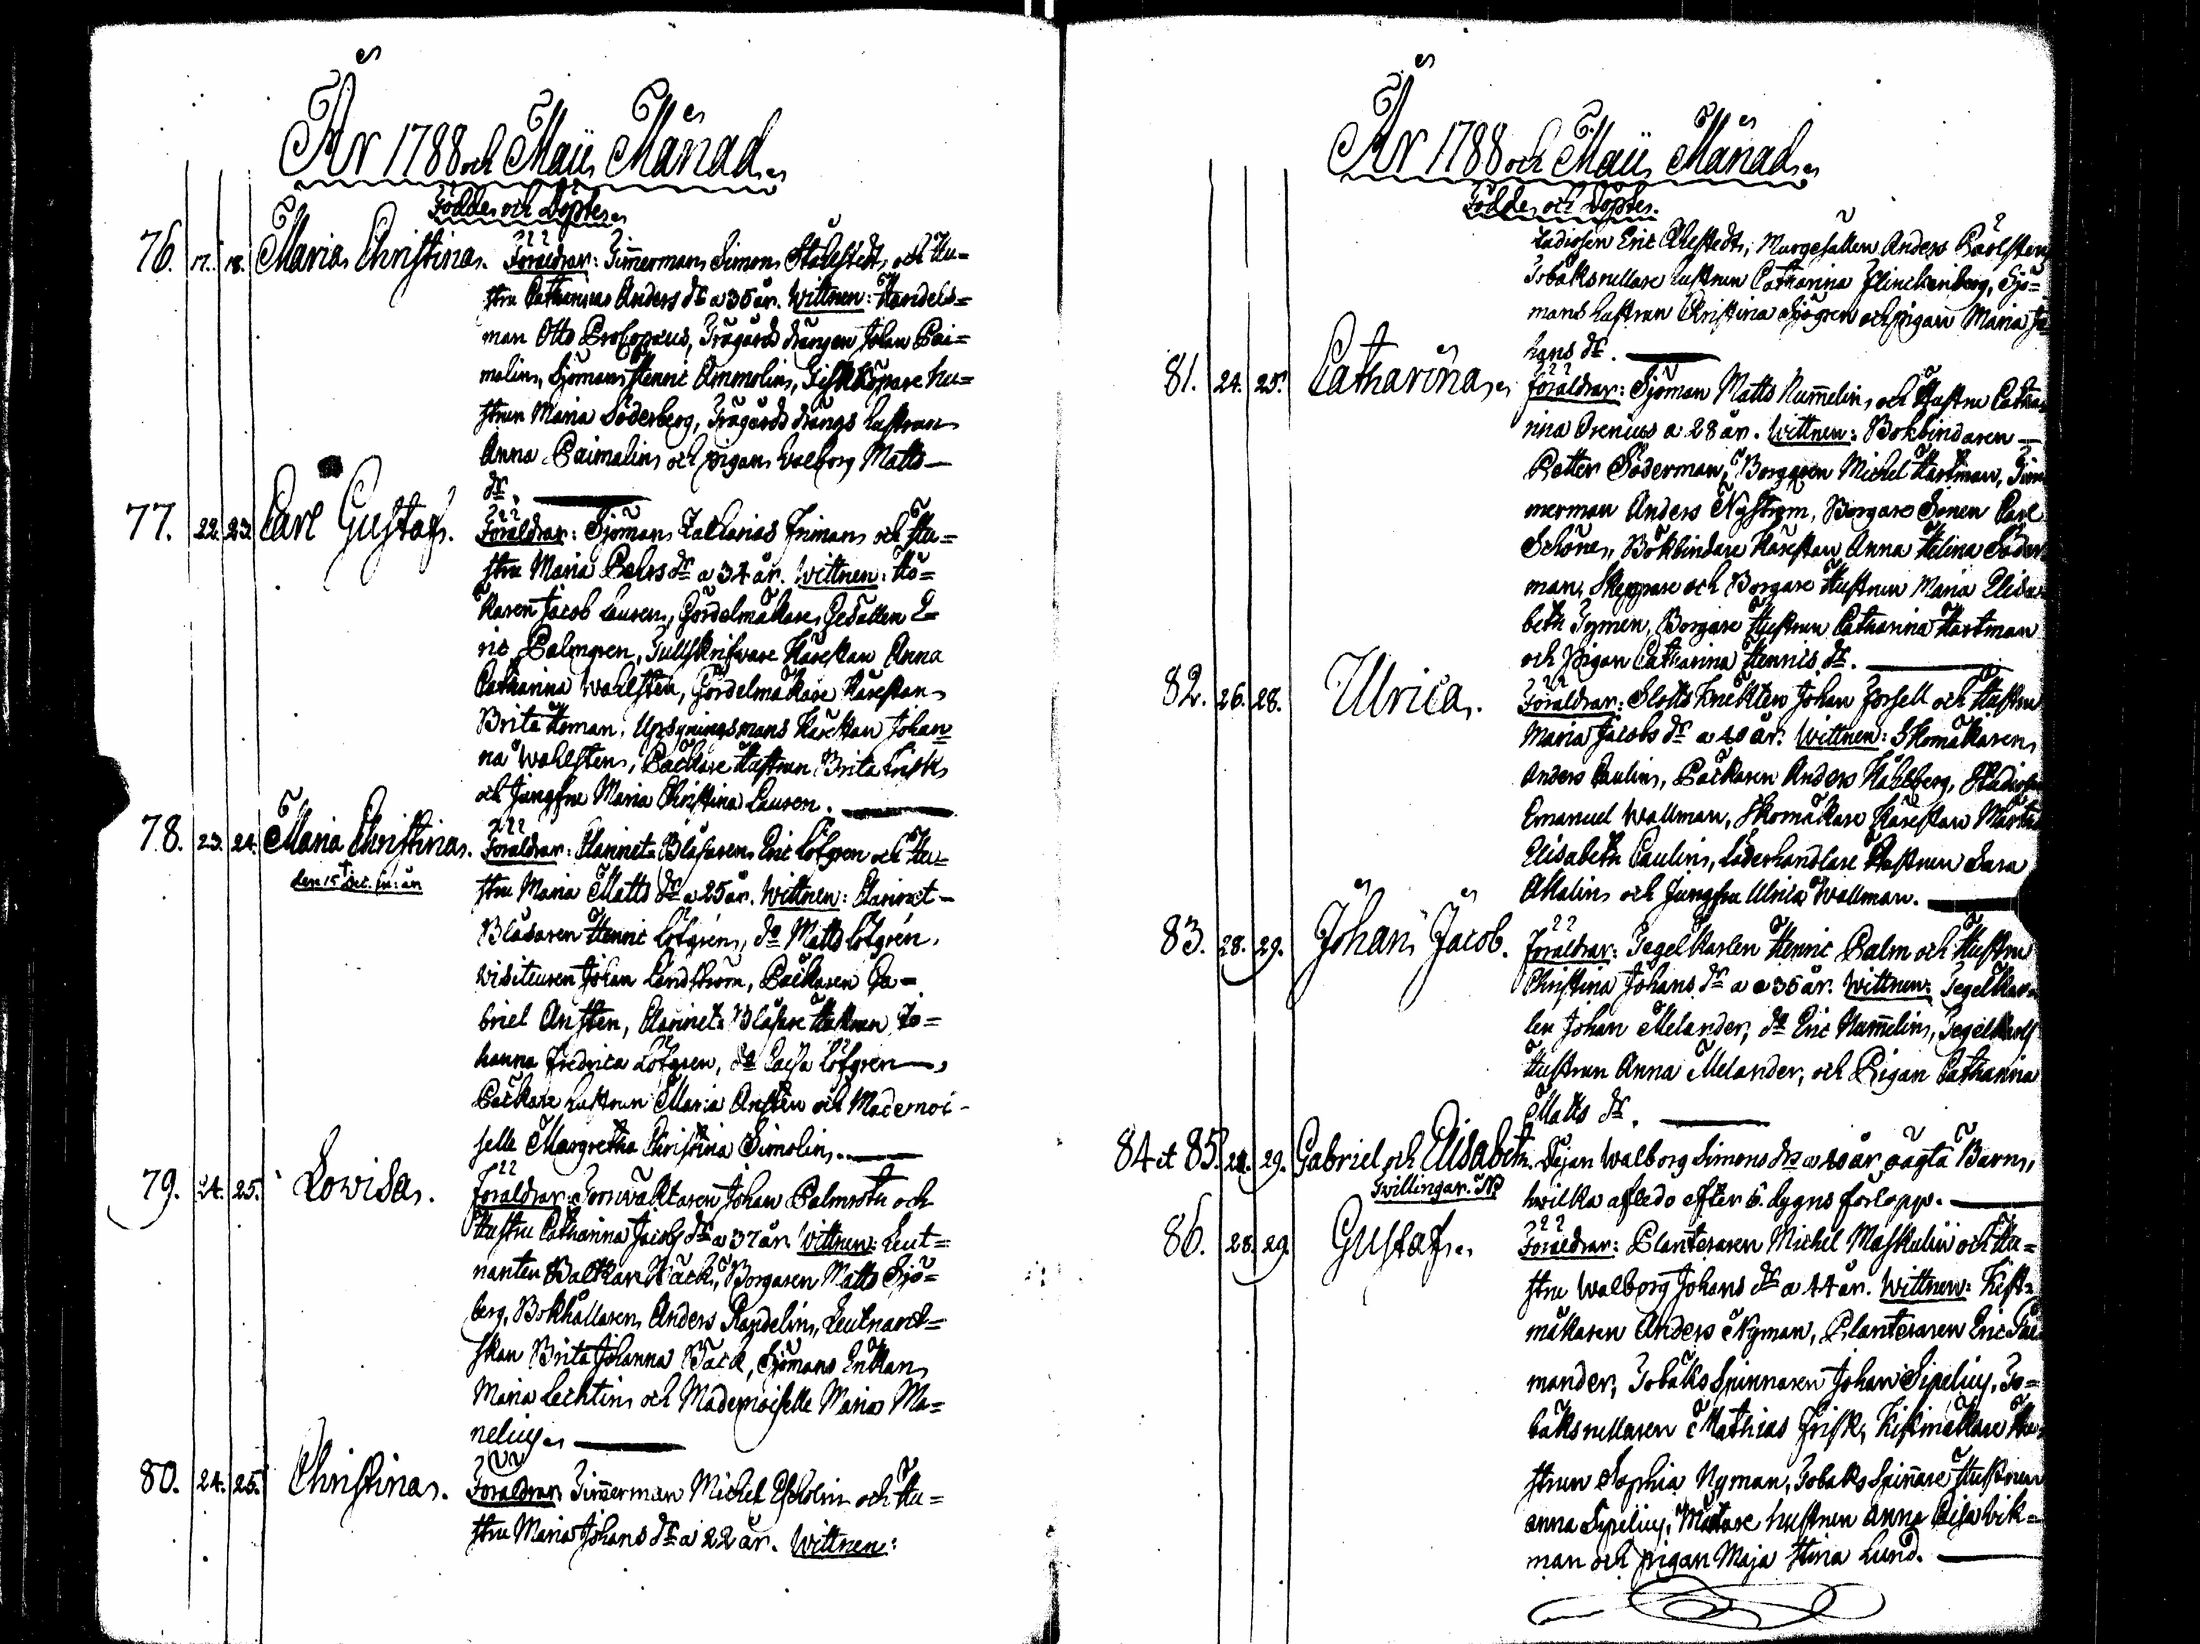 År 1788 och Maii Månad.
Födde och Döpte.
76. 17. 18. Maria Christina. Föräldrar: Timmerman Simon Ståhlstedt, och Hu=
stru Catharina Anders dr a 35 år. Wittnen: Handels=
man Otto Procopæus, Trägårds drängen Johan Pai=
malin, Sjöman Henric Ammolin, Fiskköpare hu=
strun Maria Söderberg, Trägårds drängs hustrun
Anna Paimalin och pigan Walborg Matts
dr.
77. 22. 23. Carl Gustaf. Föräldrar: Sjöman Zacharias Friman och Hu=
stru Maria Pehrs dr a 34 år. Wittnen: Hö=
karen Jacob Lauren, Gördelmakare Gesällen E=
ric Palmgren, Tullskrifware Kärestan Anna
Catharina Wahlsten, Gördelmakare Kärestan
Brita Homan, Upsyningsmans Kärestan Johan
na Wahlsten, Packare Hustrun Brita Frisk
och Jungfru Maria Christina Lauren.
78. 23. 24. Maria Christina. Föräldrar: Clarinet-Blåsaren Eric Löfgren och Hu=
den 15 Dec. in: an
stru Maria Matts dr a 25 år. Wittnen: Clarinet-
Blåsaren Henric Löfgren, do Matts Löfgren,
Visiteuren Johan Landström, Packaren Ga=
briel Ansten, Clarinet-Blåsare Hustrun Jo=
hanna Fredrica Löfgren, do Caisa Löfgren
Packare hustrun Maria Ansten och Mademoi-
selle Margretha Christina Simolin.
79. 24. 25. Lowisa. Föräldrar: Tornwäktaren Johan Palmroth och
Hustru Catharina Jacobs dr a 37 år. Wittnen: Leut=
nanten Balthar Bäck, Borgaren Matts Sjö=
berg, Bokhållaren Anders Randelin, Leutnant=
skan Brita Johanna Bäck, Sjömans Enkan
Maria Lechtin och Mademoiselle Maria Ma=
nelius.
80. 24. 25. Christina. Föräldrar: Timmerman Michel Escholin och Hu=
stru Maria Johans dr a 22 år. Wittnen:
År 1788 och Maii Månad.
Födde och Döpte.
Studiosen Eric Ahlstedt, Murgesällen Anders Carlsten
Tobaksrullare hustrun Catharina Flinckenberg, Sjö=
mans hustrun Christina Sjögren och pigan Maria Jo
hans dr.
81. 24. 25. Catharina. Föräldrar: Sjöman Matts Nummelin, och Hustru Catha
rina Orenius a 28 år. Wittnen: Bokbindaren
Petter Söderman, Borgaren Michel Hartman, Tim
merman Anders Nyström, Borgare Sonen Carl
Schöne, Bokbindare Kärestan Anna Helina Söder
man, Skeppare och Borgare Hustrun Maria Elisa
beth Tymen, Borgare Hustrun Catharina Hartman
och Pigan Catharina Henrics dr.
82. 26. 28. Ulrica. Föräldrar: Slotts Knekten Johan Forsell och Hustru
Maria Jacobs dr a 40 år. Wittnen: Skomakaren
Anders Paulin, Packaren Anders Kahlberg, Studiosen
Emanuel Wallman, Skomakare Kärestan Märta
Elisabeth Paulin, Läderhandlare Hustrun Sara
Ahalin och Jungfru Ulrica Wallman.
83. 28. 29. Johan Jacob. Föräldrar: Tegelkarlen Henric Palm och Hustru
Christina Johans dr a 36 år. Wittnen: Tegelkar=
len Johan Melander, do Eric Nummelin, Tegelkarls
Hustrun Anna Melander, och Pigan Catharina
Matts dr.
84 et 85. 28. 29. Gabriel och Elisabeth. Pigan Walborg Simons dr a 40 år oägta Barn,
Twillingar.
hwilka afledo efter 6. dygns förlopp.
86. 28. 29. Gustaf. Föräldrar: Planteraren Michel Maskulin och Hu=
stru Walborg Johans dr a 44 år. Wittnen: Kist=
makaren Anders Nyman, Planteraren Eric
mander, Tobaks Spinnaren Johan Sipelius, To=
baksrullaren Mathias Frisk, Kistmakare Hu=
strun Sophia Nyman, Tobaks Spinnare Hustrun
Anna Sipelius, Mätare hustrun Anna Caisa Wik=
man och pigan Maja Stina Lund.